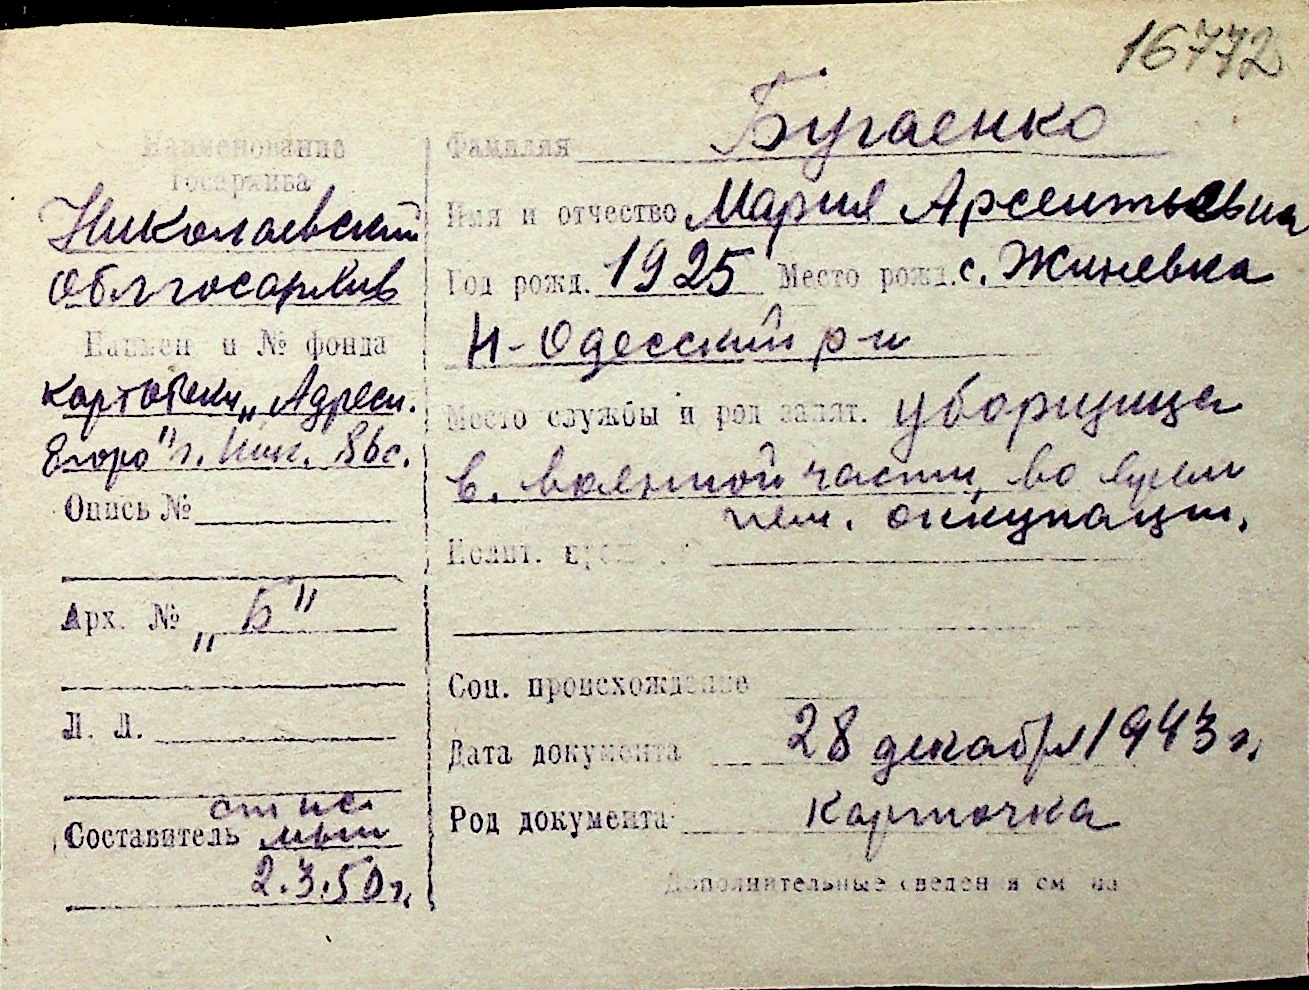 16772
Наименование
госархива
Николаевский
облгосархив
Наимен и № фонда
картотеки „Адресн.
бюро" г. Ник.
Опись №
Арх. № „Б"
Л. Л.
Составитель
2.3.50 г.
Фамилия Бугаенко
Имя и отчество Мария Арсентьевна
Год рожд. 1925 Место рожд. с. Жиневка
Н-Одесский р-н
Место службы и род занят. уборщица
в. военной части, во время
нем. оккупации.
Полит.
Соц. происхождение
Дата документа 28 декабря 1943 г.
Род документа карточка
Дополнительные сведения см на